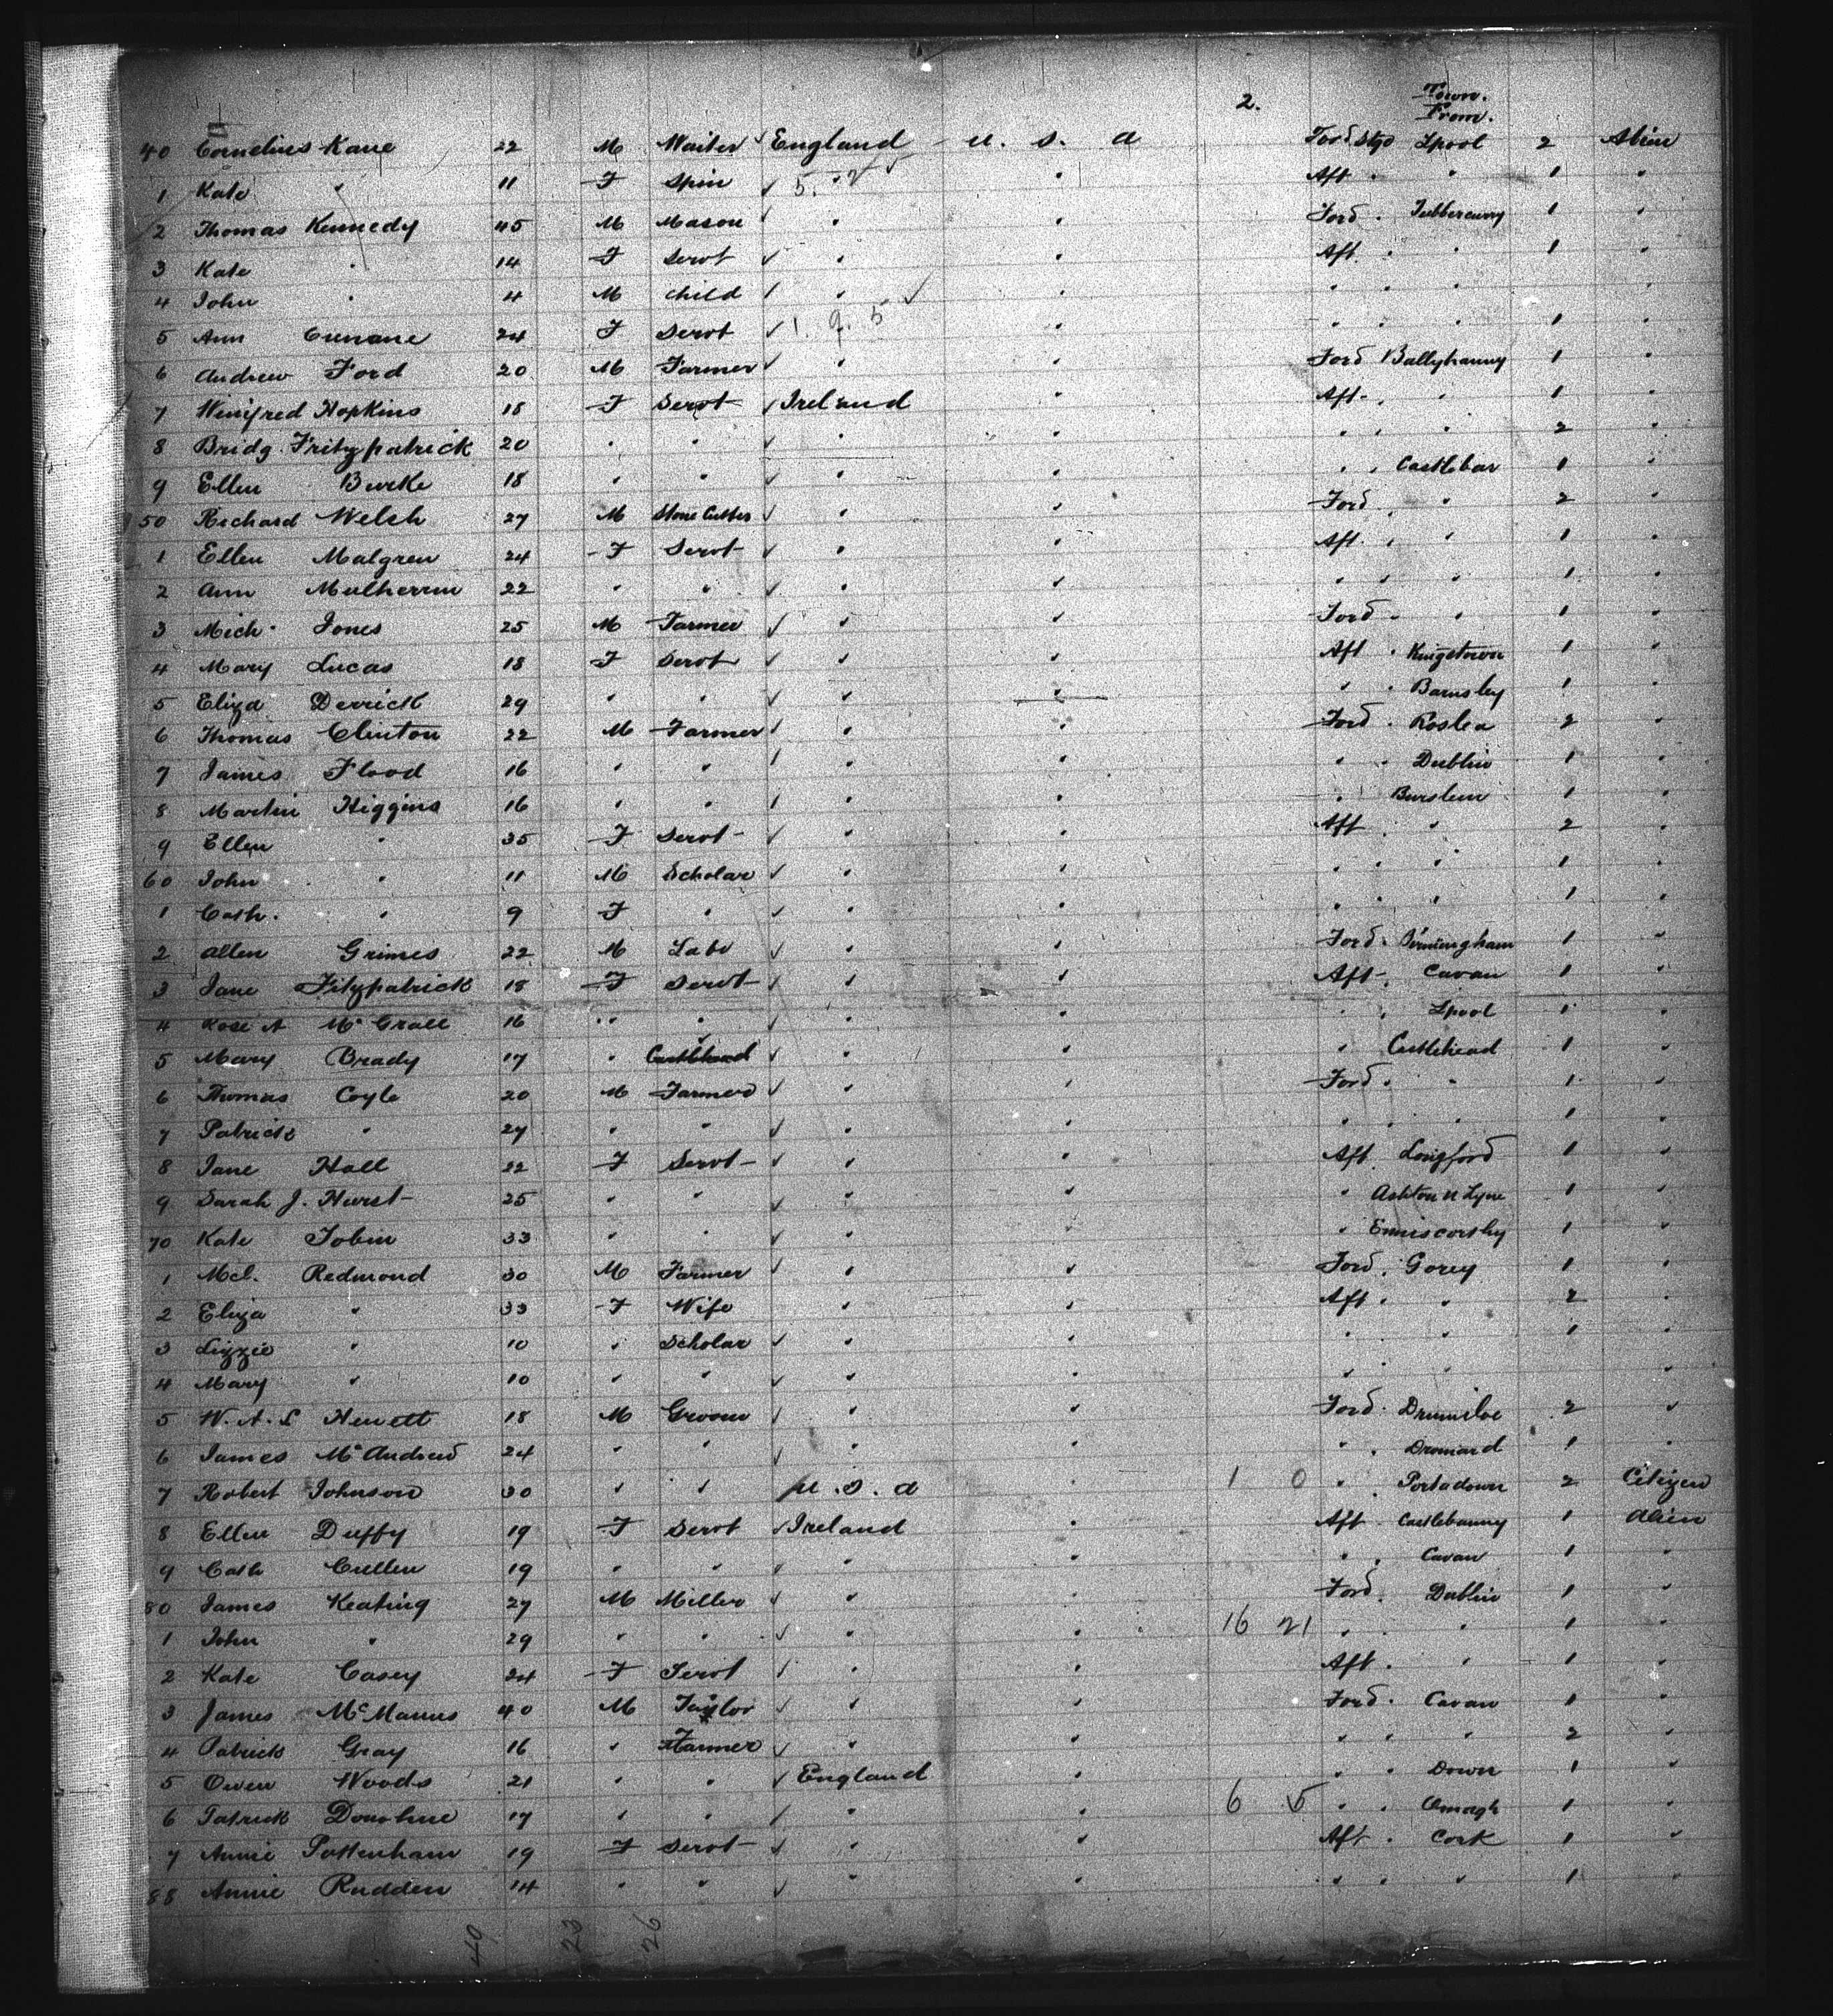 2.
Town.
From.
40 Cornelius Kane 22 M Waiter England U. S. A Ford Stge Lpool 2 Alien
1 Kate " 11 F Spin " " Aft " " 1 "
2 Thomas Kennedy 45 M Mason " " Ford " Tubbercurry 1 "
3 Kate " 14 F Servt " " Aft " " 1 "
4 John " 4 M Child " " " " " " "
5 Ann Cunane 24 F Servt " " " " " 1 "
6 Andrew Ford 20 M Farmer " " Ford Ballyhauny 1 "
7 Winifred Hopkins 18 F Servt Ireland " Aft " " 1 "
8 Bridg. Fritzpatrick 20 " " " " " " " 2 "
9 Ellen Burke 18 " " " " " " Castlebar 1 "
50 Richard Welsh 27 M Stone Cutter " " Ford " " 2 "
1 Ellen Malgrew 24 F Servt " " Aft " " 1 "
2 Ann Mulherrin 22 " " " " " " " 1 "
3 Mich. Jones 25 M Farmer " " Ford " " 1 "
4 Mary Lucas 18 F Servt " " Aft " Kingstown 1 "
5 Eliza Derrick 29 " " " " " " Barnsley 1 "
6 Thomas Clinton 22 M Farmer " " Ford " Roslea 2 "
7 James Flood 16 " " " " " " Dublin 1 "
8 Martin Higgins 16 " " " " " Burslem 1 "
9 Ellen " 35 F Servt " " Aft " " 2 "
60 John " 11 M Scholar " " " " " 1 "
1 Cath. " 9 F " " " " " " 1 "
2 Allen Grimes 22 M Labr " " Ford " Birmingham 1 "
3 Jane Fitzpatrick 18 F Servt " " Aft " Cavan 1 "
4 Rose A McGrall 16 " " " " " " Lpool 1 "
5 Mary Brady 17 " Castlehead " " " Castlehead 1 "
6 Thomas Coyle 20 M Farmer " " Ford " " 1 "
7 Patrick " 27 " " " " " " " 1 "
8 Jane Hall 22 F Servt " " Aft " Longford 1 "
9 Sarah J. Hurst 25 " " " " " Ashton n Lyne 1 "
70 Kate Tobin 33 " " " " " Enniscorthy 1 "
1 Mcl. Redmond 30 M Farmer " " Ford " Gorey 1 "
2 Eliza " 33 F Wife " " Aft " " 2 "
3 Lizzie " 10 " Scholar " " " " 1 "
4 Mary " 10 " " " " " " "
5 W. A. L Hewett 18 M Groom " " Ford " 2 "
6 James McAndrew 24 " " " " " " Dromard 1 "
7 Robert Johnson 30 " " U. S. A " 1 0 " " Portadown 2 Citizen
8 Ellen Duffy 19 F Servt Ireland " Aft " Castlebauny 1 Alien
9 Cath Cullen 19 " " " " " " Cavan 1 "
80 James Keating 27 M Miller " " Ford " Dublin 1 "
1 John " 29 " " " " 16 21 " " " 1 "
2 Kate Casey 24 F Servt " " Aft " " 1 "
3 James McManus 40 M Taylor " " Ford " Cavan 1 "
4 Patrick Gray 16 " Farmer " " " " " 2 "
5 Owen Woods 21 " " England " " " Down 1 "
6 Patrick Donohue 17 " " " " 6 5 " " Omagh 1 "
7 Annie Pottenham 19 F Servt " " Aft " Cork 1 "
88 Annie Rudden 14 " " " " " " " 1 "
49 23 26